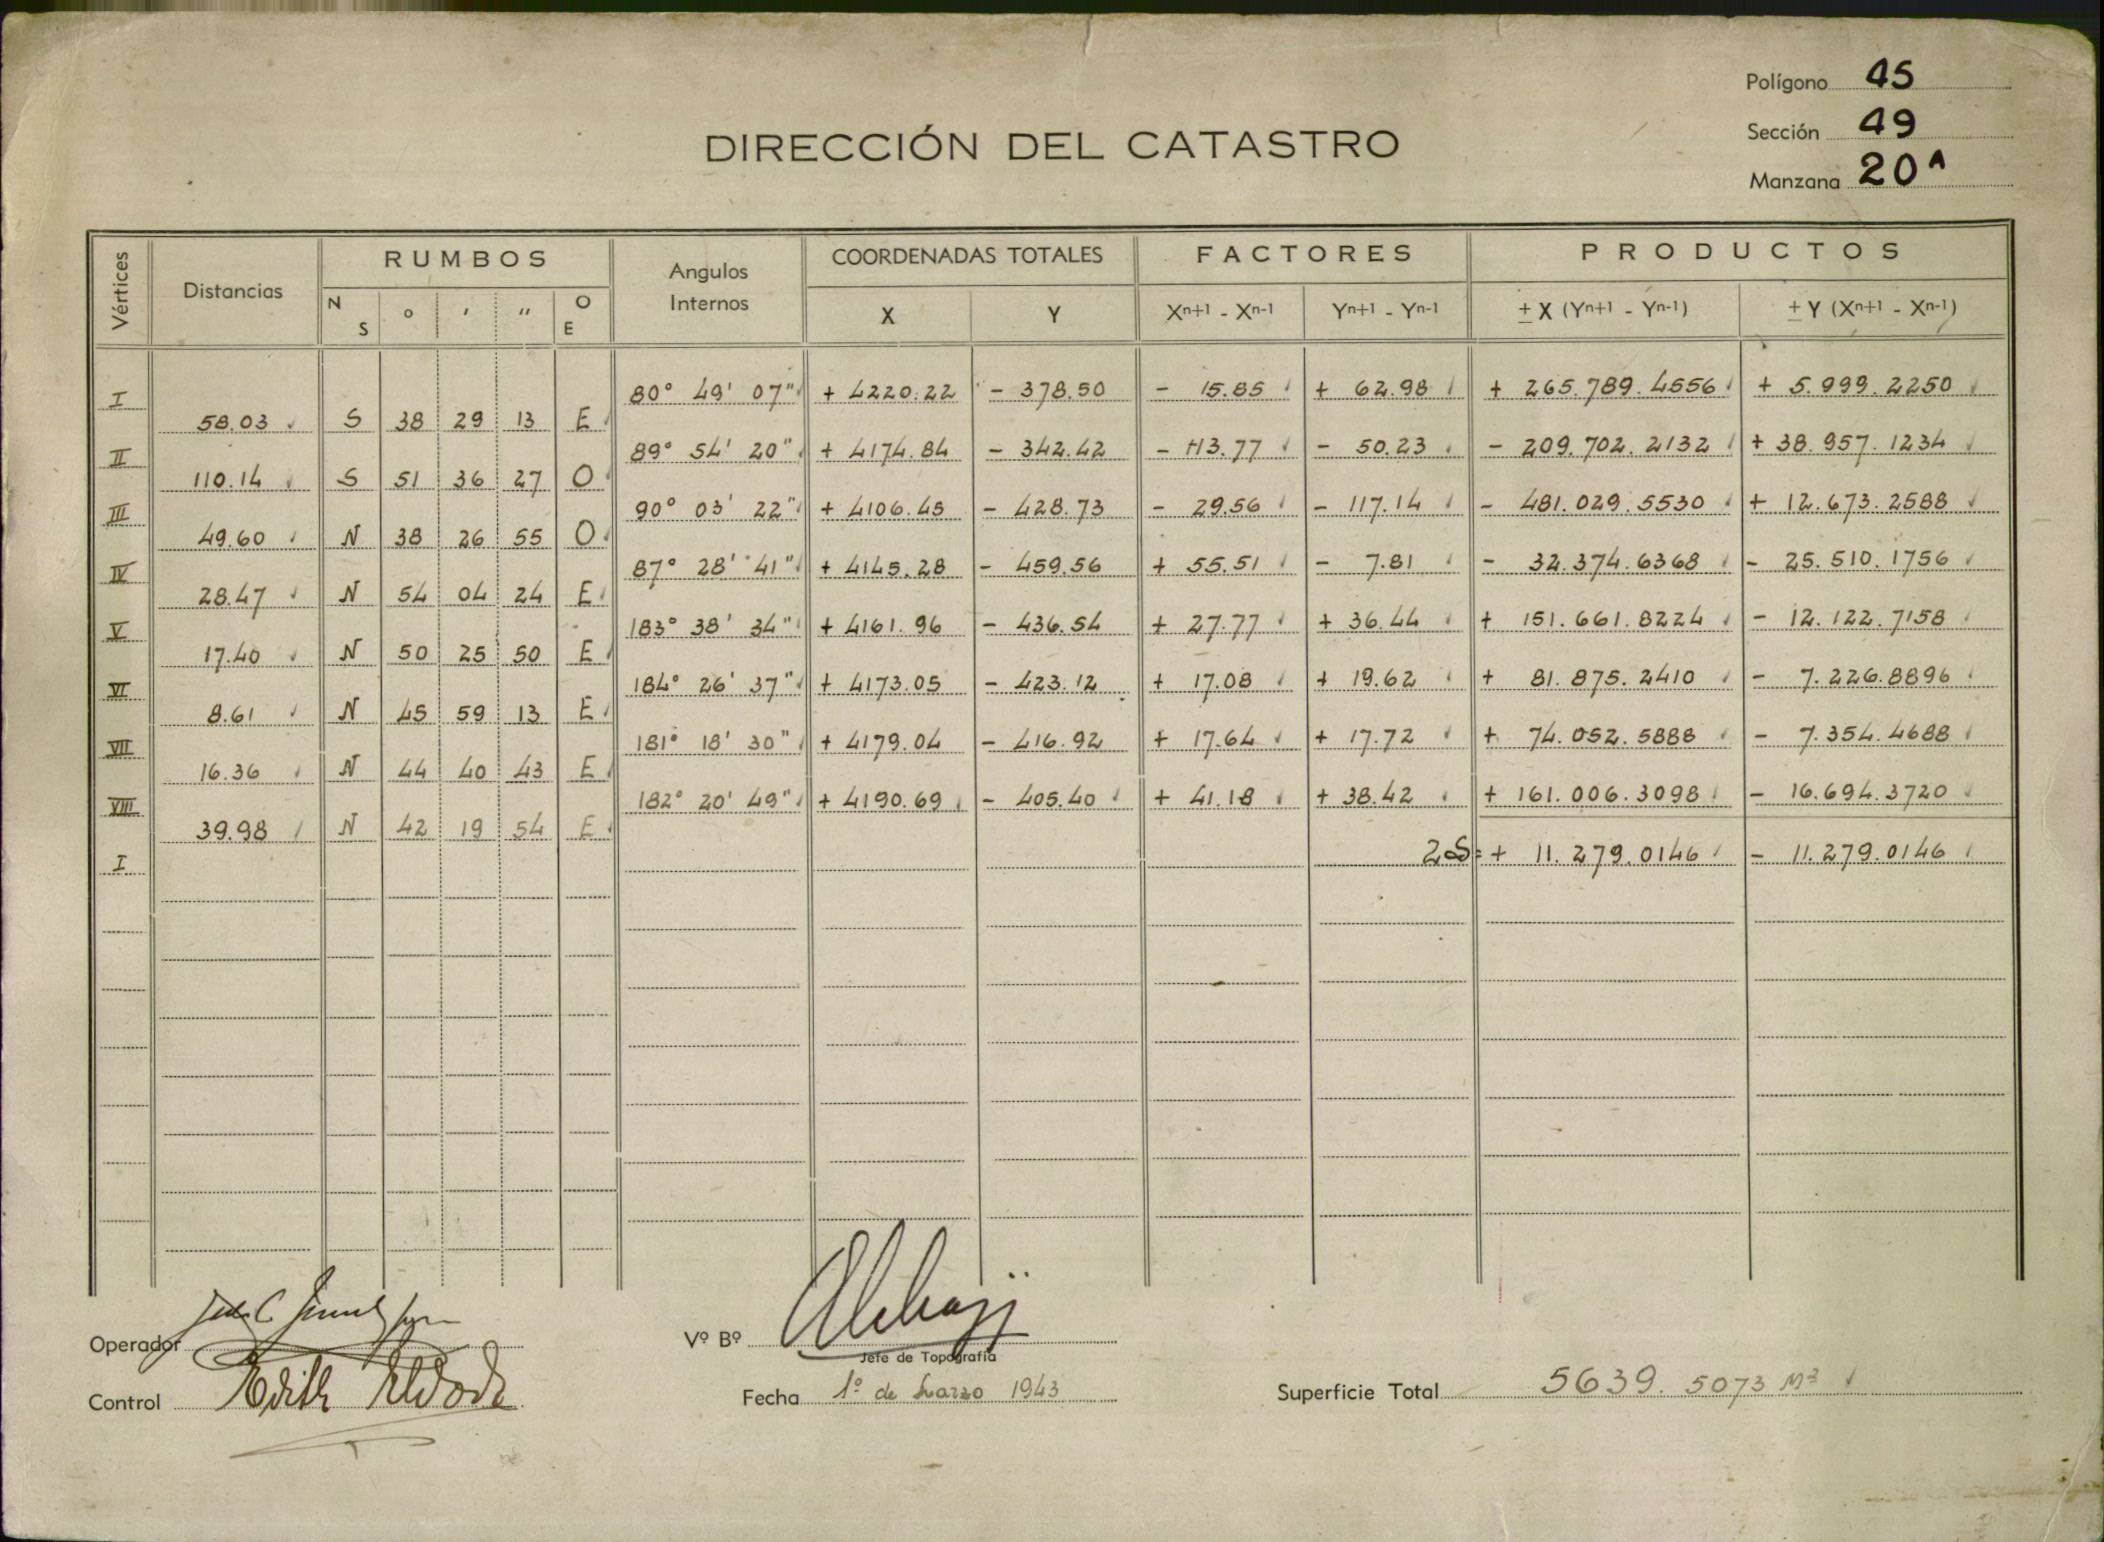 Polígono 45
Sección 49
Manzana 20ᴬ
DIRECCIÓN DEL CATASTRO
Vértices Distancias RUMBOS Angulos Internos COORDENADAS TOTALES FACTORES PRODUCTOS
N S ° ' " O E X Y Xⁿ⁺¹ - Xⁿ⁻¹ Yⁿ⁺¹ - Yⁿ⁻¹ ± X (Yⁿ⁺¹ - Yⁿ⁻¹) ± Y (Xⁿ⁺¹ - Xⁿ⁻¹)
I 80° 49' 07" + 4220.22 - 378.50 - 15.85 + 62.98 + 265.789.4556 + 5.999.2250
58.03 S 38 29 13 E
II 89° 54' 20" + 4174.84 - 342.42 - 113.77 - 50.23 - 209.702.2132 + 38.957.1234
110.14 S 51 36 27 O
III 90° 03' 22" + 4106.45 - 428.73 - 29.56 - 117.14 - 481.029.5530 + 12.673.2588
49.60 N 38 26 55 O
IV 87° 28' 41" + 4145.28 - 459.56 + 55.51 - 7.81 - 32.374.6368 - 25.510.1756
28.47 N 54 04 24 E
V 183° 38' 34" + 4161.96 - 436.54 + 27.77 + 36.44 + 151.661.8224 - 12.122.7158
17.40 N 50 25 50 E
VI 184° 26' 37" + 4173.05 - 423.12 + 17.08 + 19.62 + 81.875.2410 - 7.226.8896
8.61 N 45 59 13 E
VII 181° 18' 30" + 4179.04 - 416.92 + 17.64 + 17.72 + 74.052.5888 - 7.354.4688
16.36 N 44 40 43 E
VIII 182° 20' 49" + 4190.69 - 405.40 + 41.18 + 38.42 + 161.006.3098 - 16.694.3720
39.98 N 42 19 54 E
I 2S = + 11.279.0146 - 11.279.0146
Operador
Vº Bº
Jefe de Topografía
Control
Fecha 1º de Marzo 1943
Superficie Total 5639.5073 M²